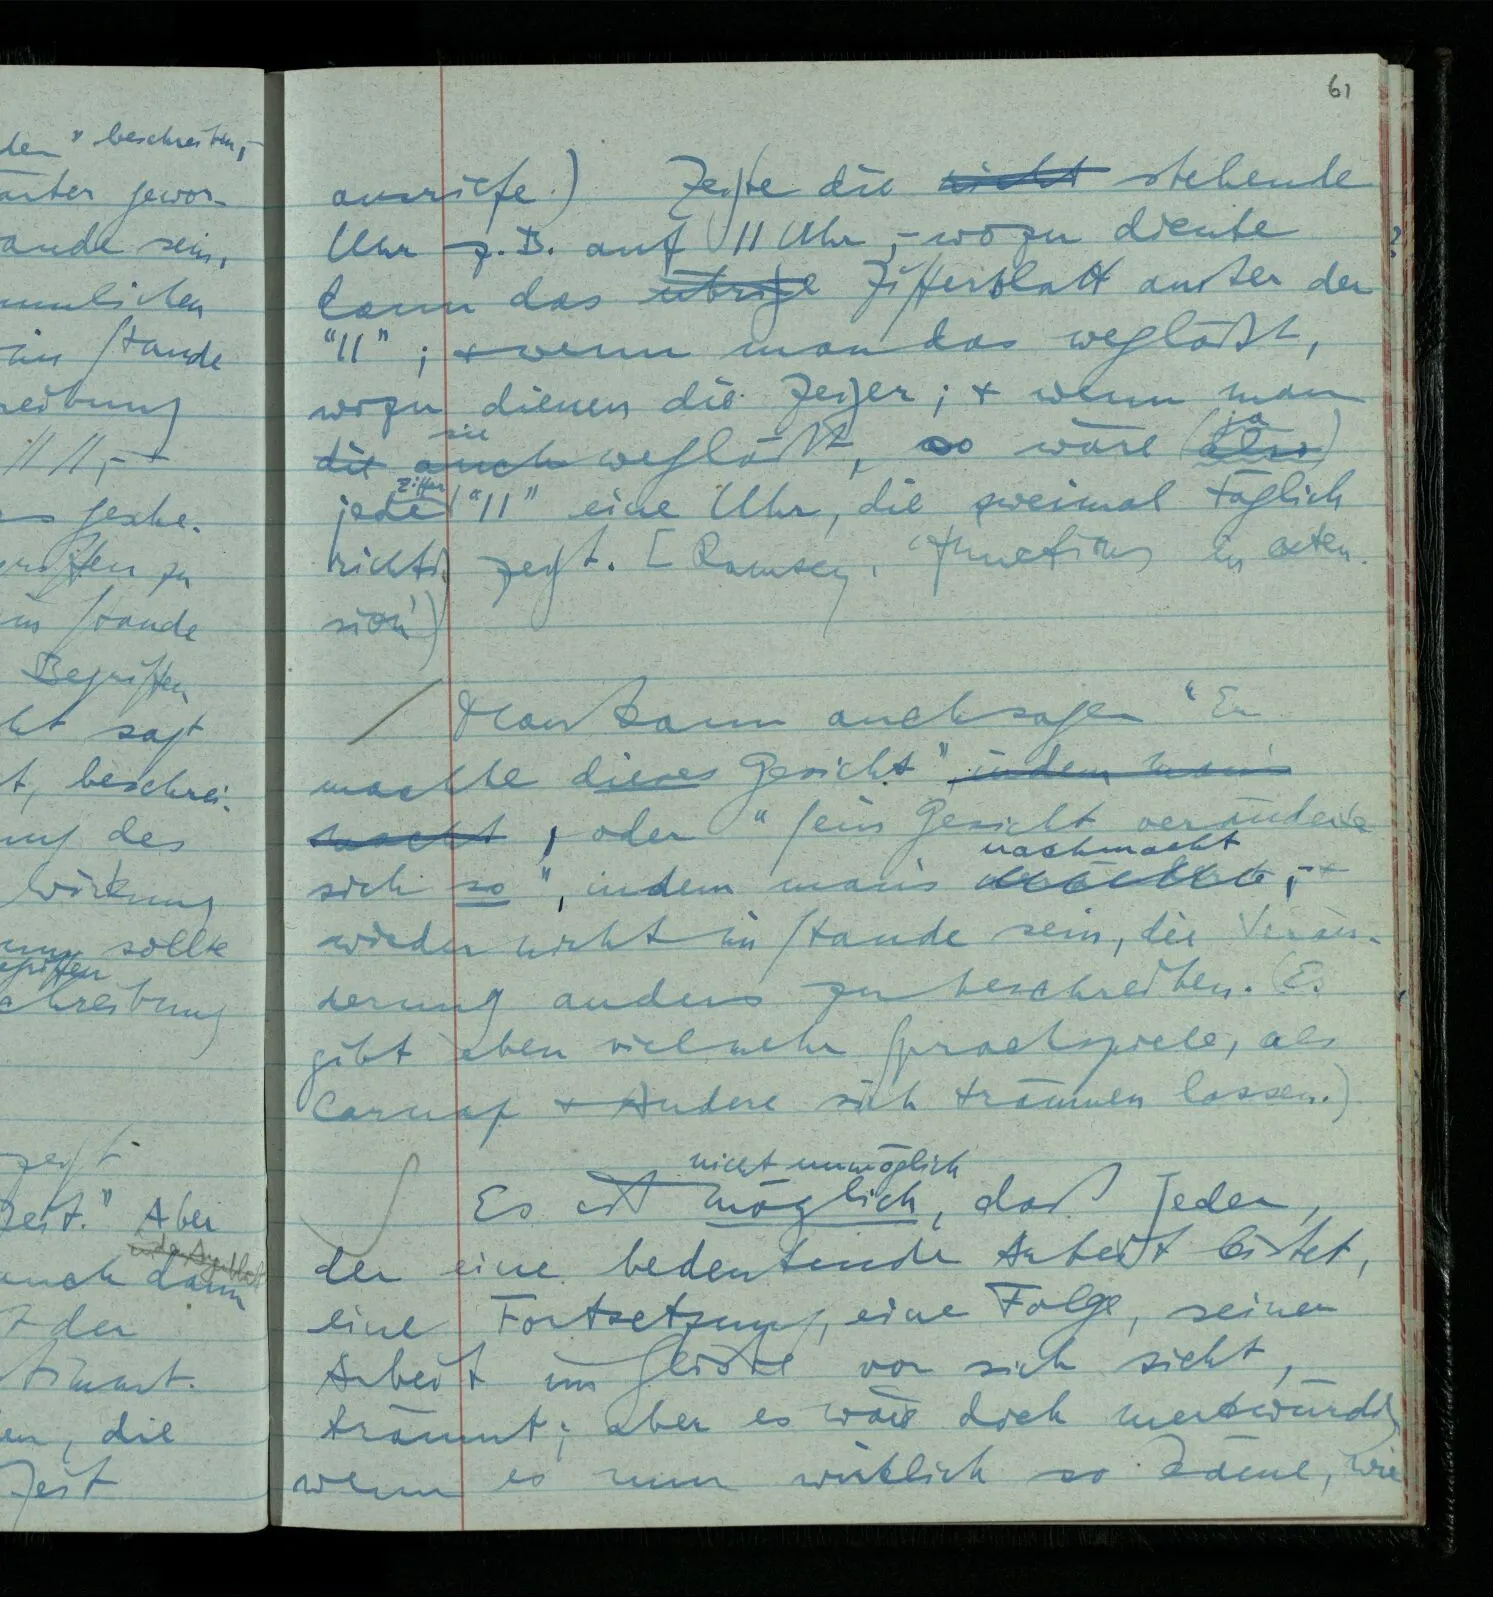 den" beschreiben,–
ärter gewor-
ande sein,
mmlichen
im Stande
reibung
11 11,–
s gesche-
griffen zu
im Stande
Begriffen
ht sagt
t, beschrei-
ung des
Wirkung
sollte
griffen
chreibung
zeigt
Zeit." Aber
auch dann
der
stimmt.
en, die
Zeit
61
ausriefe.) Zeigte die nicht stehende
Uhr z.B. auf 11 Uhr,– wozu diente
dann das übrige Zifferblatt außer der
"11"; + wenn man das wegläßt,
wozu dienen die Zeiger; + wenn man
sie ja
die auch wegläßt, so wäre (also)
Ziffer
jede "11" eine Uhr, die zweimal täglich
richtig zeigt. [Ramsey, 'functions in exten-
sion')
Man kann auch sagen "Er
machte dieses Gesicht" indem man's
macht, oder "Sein Gesicht veränderte
nachmacht
sich so", indem man's,– +
wieder nicht im Stande sein, die Verän-
derung anders zu beschreiben. (Es
gibt eben viel mehr Sprachspiele, als
Carnap + Andere sich träumen lassen.)
nicht unmöglich
Es ist möglich, daß Jeder,
der eine bedeutende Arbeit leistet,
eine Fortsetzung, eine Folge, seiner
Arbeit im Geiste vor sich sieht,
träumt; aber es wäre doch merkwürdig
wenn es nun wirklich so käme, wie